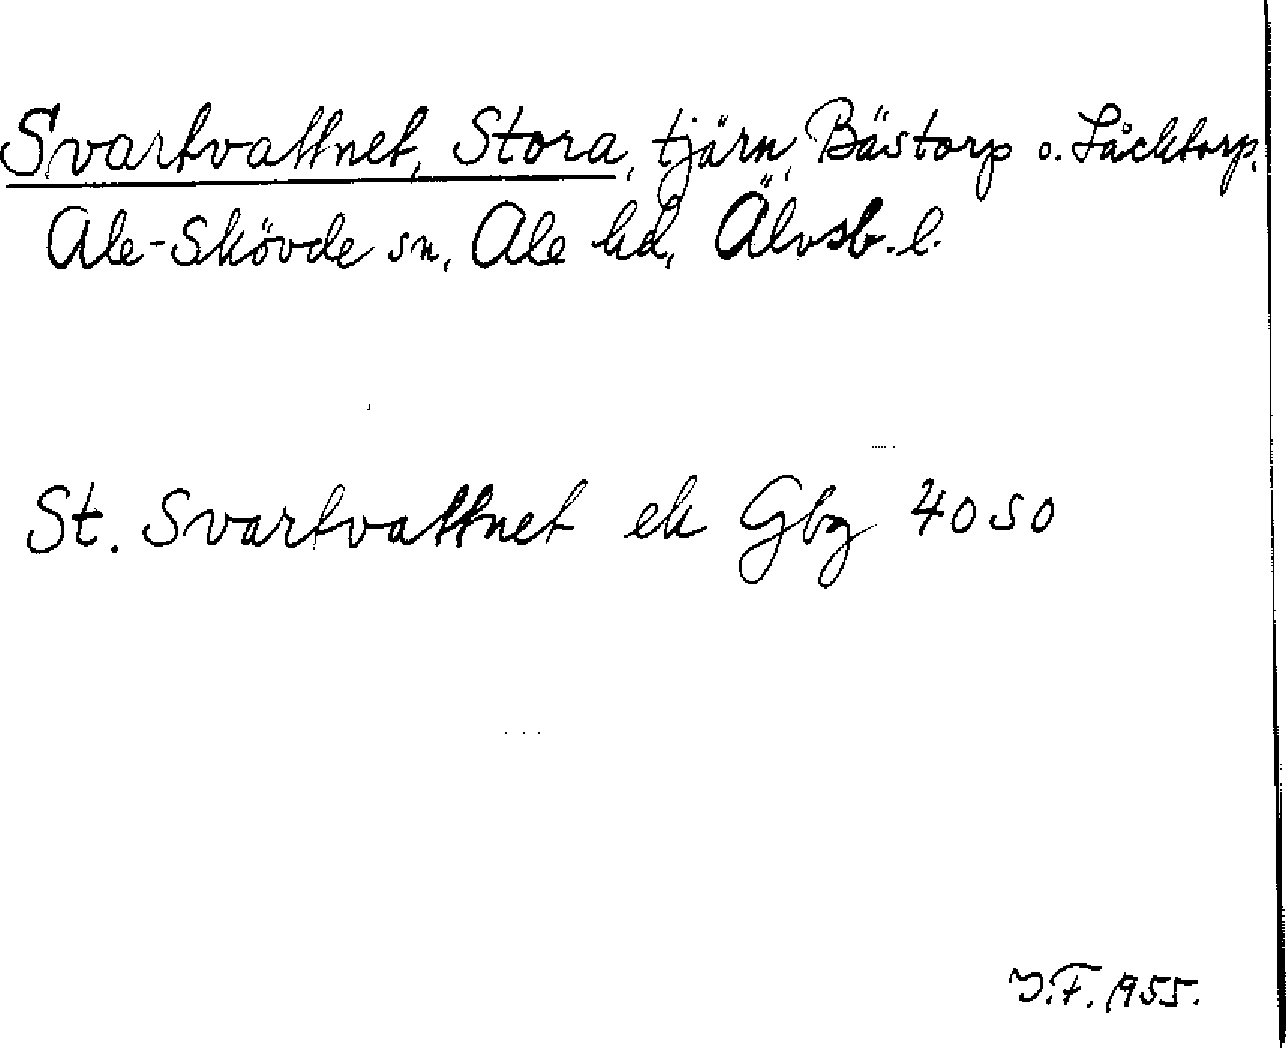 Svartvattnet, Stora, tjärn, Bästorp o. Låcktorp,
Ale-Skövde sn, Ale hd, Älvsb. l.
St. Svartvattnet ek Gbg 4050
J.F. 1955.